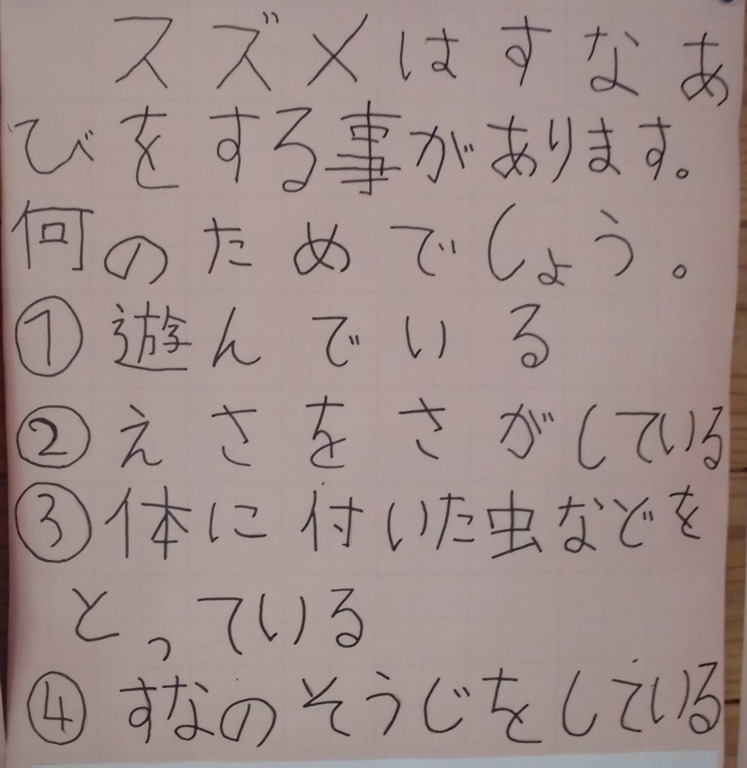 スズメはすなあ
びをする事があります。
何のためでしょう。
①遊んでいる
②えさをさがしている
③体に付いた虫などを
とっている
④すなのそうじをしている